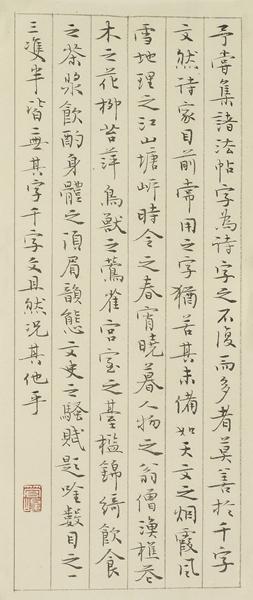 予嘗集諸法帖字為詩字之不復而多者莫善於千字
文然詩家目前常用之字猶苦其未備如天文之烟霞風
雪地理之江山塘岸時令之春宵曉暮人物之翁僧漁樵花
木之花柳苔萍鳥獸之鶯雀宮室之臺檻錦綺飲食
之茶漿飲酌身體之須眉韻態文史之騷賦題吟數目之一
三雙半皆無其字千字文且然況其他乎